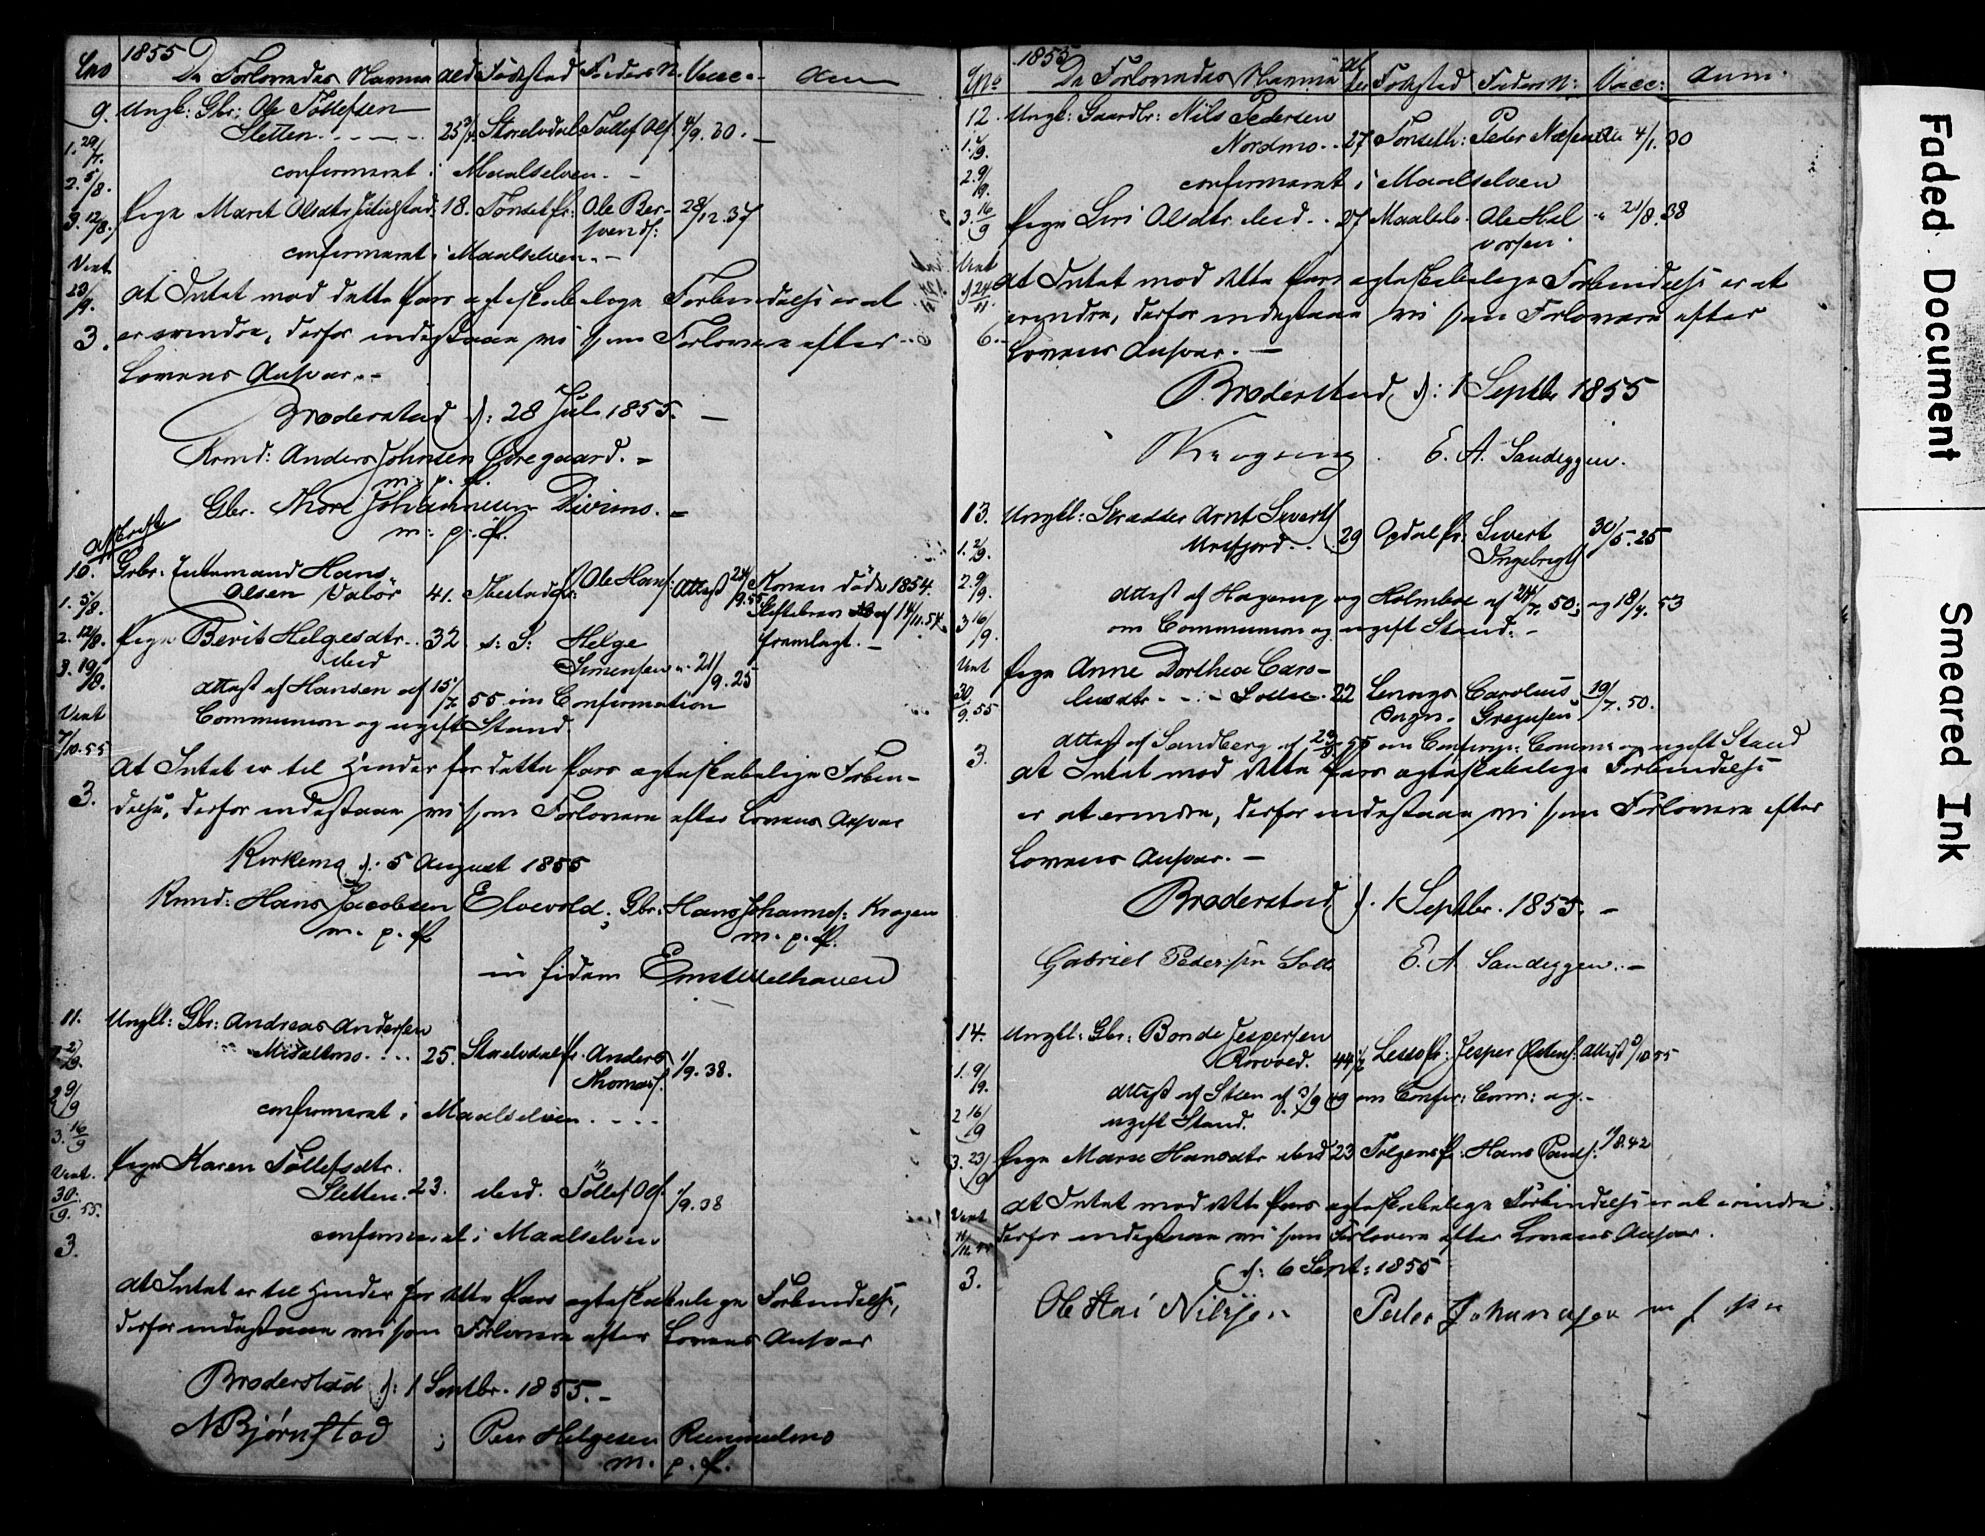 1855
No De Forlovedes Navne Ald Fødested Faders N. Vacc. Anm
9. Ungk: Gbr: Ole Tollefsen
Sletten. 25 3/4 Storelvdal Tollef Ols. 4/9. 30. -
1. 29/7.
confirmeret i Maalselven. -
2. 5/8.
3. 12/8. Pige Marit Olsdtr 18. Tønset Pr: Ole Ber- 28/12. 37
send:
confirmeret i Maalselven. -
Viet
23/9.
at Intet mod dette Pars ægteskabelige Forbindelse er at
3. erindre, derfor indestaae vi som Forlovere efter
Lovens Ansvar. -
Moderstad d: 28 Juli 1855. -
Kmd: Anders Johnsen Øvregaard. -
m. p. P.
Gbr. Thore Johannesen Divimo. -
m: p: P.
10. Gbr: Enkemand Hans
Olsen Valør 41. Ibestad Pr: Ole Hans: Attest 24/9.55 Konen døde 1854.
1. 5/8. Skiftebrev af 14/11.54
2. 12/8. Pige Berit Helgesdtr. 32 s: S: Helge fremlagt. -
ibid Simensen 21/9. 25
3. 19/8.
Attest af Hansen af 15/7 55 om Confirmation
Communion og ugift Stand.
Viet
7/10.55
at Intet er til Hinder for dette Pars ægteskabelige Forbin-
3. delse, derfor indestaae vi som Forlovere efter Lovens Ansvar
Kirkemo d. 5 August 1855
Kmd: Hans Jacobsen Elvevold; Gbr: Hans Johannes: Krogen
m. p. P. m. p. P.
in fidem
11. Ungk: Gbr: Andreas Andersen
Moaltmo. 25. Storelvdal Pr. Anders 1/9. 38.
Thomas:
1. 2/9.
2. 9/9
confirmeret i Maalselven. . . .
3. 16/9
Pige Karen Tollefsdtr.
Viet. Sletten. 23. ibid. Tollef Ols. 1/9. 38
30/9. 55.
confirmeret i Maalselven
3.
at Intet er til Hinder for dette Pars ægteskabelige Forbindelse,
derfor indestaae vi som Forlovere efter Lovens Ansvar
Broderstad d: 1 Septbr. 1855. -
N Bjørnstad ; Peer Helgesen Rummelmo
m. p. P.
1855
No De Forlovedes Navne Alder Fødested Faders N: Vacc: Anm.
12. Ungk: Gaardbr: Nils Pedersen
Nordmo. . 27 Tønseth: Peder 4/1. 30
1. 2/9.
2. 9/9.
confirmeret i Maalselven
3. 16/9 Pige Siri Olsdtr ibid. . 27 Maalselv. Ole Hal 21/8. 38
vorsen.
Viet
24/11
at Intet mod dette Pars ægteskabelige Forbindelse er at
erindre, derfor indestaae vi som Forlovere efter
6. Lovens Ansvar. -
Broderstad, d: 1 Septbr 1855
E. A. Sandeggen.
13. Ungk: Skrædder Arnt Sivert
29 Opdal Pr: Sivert 30/5. 25
Ingebrigt
1. 2/9.
2. 9/9.
Attest af Hagerup og Holmboe af 24/7. 50; og 18/7. 53
3. 16/9. om Communion og ugift Stand. -
Viet Pige Anne Dorthea Caro-
30/9. 55 lusdtr. - - - 22 Lenvigs Carolius 19/7. 50.
Sogn. Gregusen
Attest af Sandberg af 55 om Confirm: Comm: og ugift Stand
3. at Intet mod dette Pars ægteskabelige Forbindelse
er at erindre, derfor indestaae vi som Forlovere efter
Lovens Ansvar. -
Broderstad d. 1 Septbr. 1855. -
Gabriel Pedersen E. A. Sandeggen. -
14. Ungk: Gbr: Bonde Jespersen
44 1/2 Lesso Pr: Jesper Attest 55
1. 9/9.
Attest af Steen af 3/9 49 om Confir: Com: og -
2. 16/9 ugift Stand.
3. 23/9 Pige Marie Hansdtr ibid 23 Tolgens Pr: Hans 8.42
Viet at Intet mod dette Pars ægteskabelige Forbindelse er at erindre
derfor indestaae vi som Forlovere efter Lovens Ansvar.
3. d: 6 Sept: 1855
Ole Nilsen Peder Johannesen
Faded Document
Smeared Ink